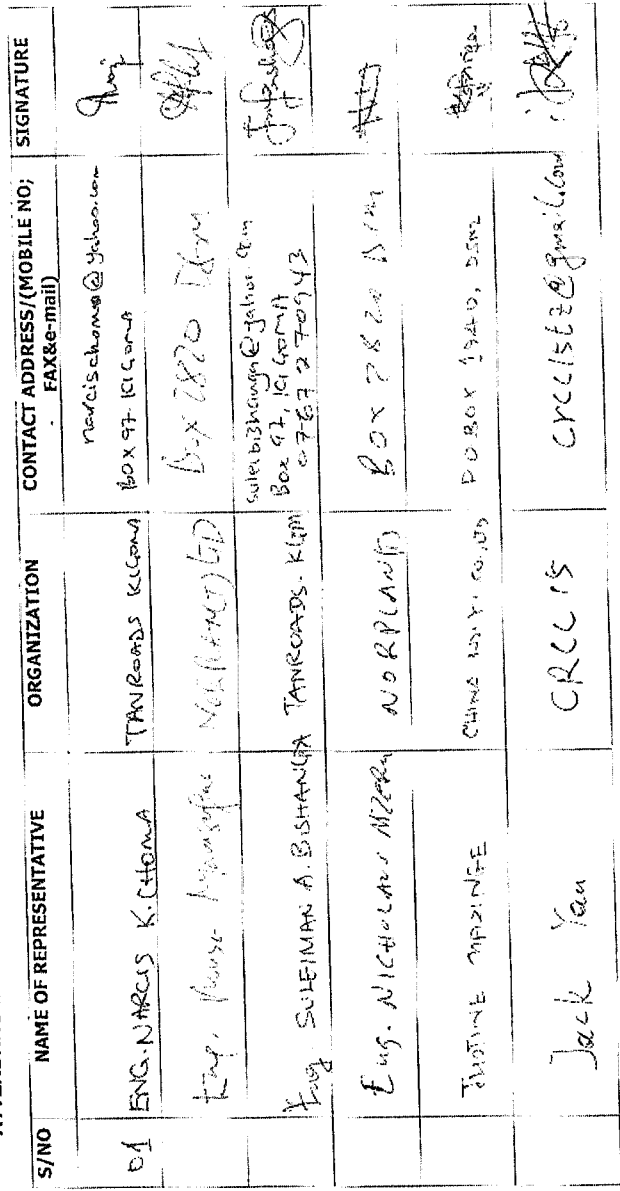 S/NO NAME OF REPRESENTATIVE ORGANIZATION CONTACT ADDRESS/(MOBILE NO; FAX&e-mail) SIGNATURE
01 ENG. NARCIS K. CHOMA TANROADS KIGOMA narcischoma@yahoo.com
BOX 97 KIGOMA
Eng. Box 2820 Dsm
Eng. SULEIMAN A. BISHANGA TANROADS - KGM suleibishanga@yahoo.com
Box 97, KIGOMA
0767270943
Eng. NICHOLAUS NORPLAN(T) BOX 2820 DSM
CHINA CO., LTD POBOX DSM
Jack Yan CRCC15 crcc15tz@gmail.com